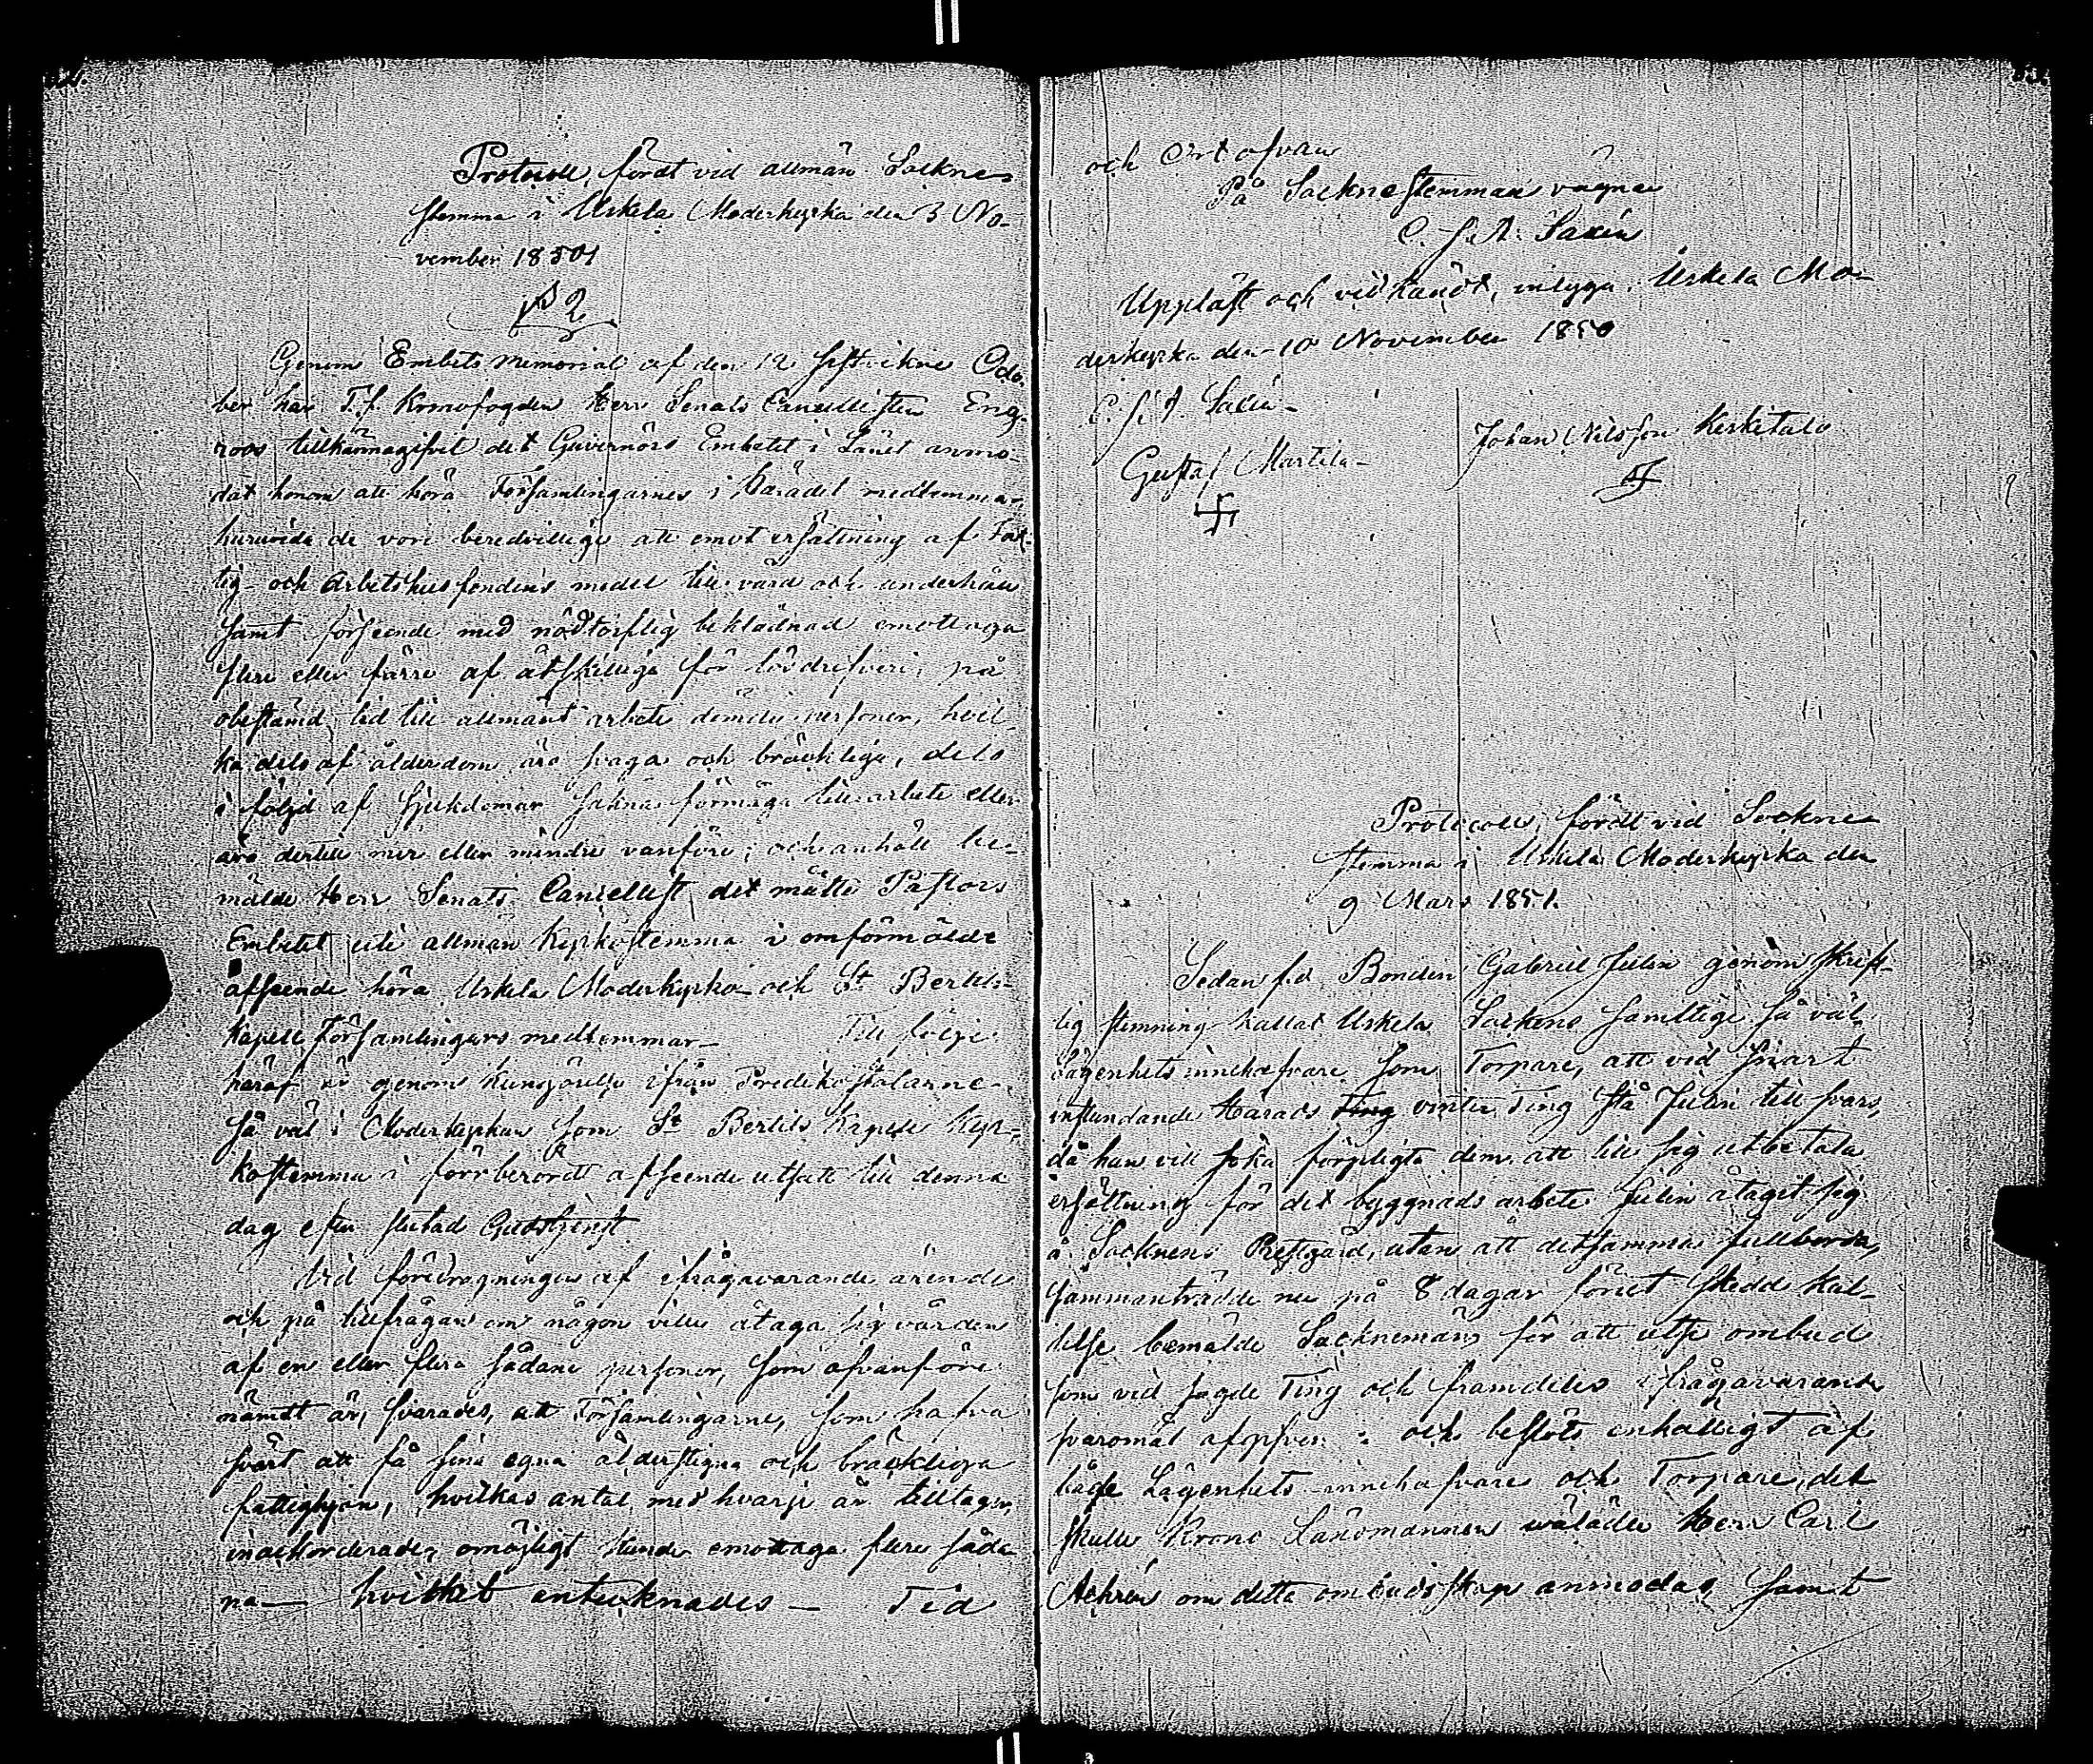 Protocoll, fördt vid allmän Sockne
stemma i Uskela Moderkyrka den 3 No-
vember 1850
§ 2
Genom Embets memorial af den 12 sistvikne Octo-
ber har T.f. Kronofogden Herr Senats Cancellisten Eng-
roos tillkännagifvit det Guvernörs Embetet i Länet anmo-
dat honom att höra Församlingarnes i Häradet medlemmar
huruvida de vore beredvillige att emot ersättning af Fat-
tig- och Arbetshusfondens medel till vård och underhåll
samt förseende med nödtorftig beklädnad emottaga
flere eller färre af åtskillige för lösdrifveri, på
obestämd tid till allmänt arbete dömde personer, hvil-
ka dels af ålderdom äro svaga och bräcklige, dels
i följd af sjukdomar sakna förmåga till arbete eller
äro dertill mer eller mindre vanföre; och anhöll be-
mälde Herr Senats Cancellist, det måtte Pastors
Embetet uti allmän Kyrkostemma i omförmälde
afseende höra Uskela Moderkyrko och St Bertils
Kapell Församlingars medlemmar – Till följe
häraf är genom kungörelse ifrån Predikostolarne
så väl i Moderkyrkan som St Bertils Kapell Kyr-
kostemma i förrberördt afseende utsatt till denna
dag efter slutad Gudstjenst.
Vid föredragningen af ifrågavarande ärende
och på tillfrågan om någon ville åtaga sig vården
af en eller flera sådane personer, som ofvanföre
nämdt är, svarades, att Församlingarne, som hafva
svårt att få sina egna ålderstigna och bräckliga
fattighjon, hvilkas antal med hvarje år tilltager,
inackorderade, omöjligt kunde emottaga flere såda
na – hvilket antecknades – Tid
och Ort ofvan
På Socknestemmans vägnar
C. J. A. Saxén
Uppläst och vidkändt, intyga. Uskela Mo-
derkyrka den 10 November 1850
C. J. A. Saxén
Gustaf Martila Johan Nilsson Kerkitalo
Protocoll, fördt vid Sockne
stemma i Uskela Moderkyrka den
9 Mars 1851.
Sedan f.d. Bonden Gabriel Julin genom skrift-
lig stemning kallat Uskela Sockens samtlige så väl
Lägenhets innehafvare som Torpare, att vid snart
instundande Härads Ting vinter Ting stå Julin till svars,
då han vill söka förpligta dem att till sig utbetala
ersättning för det byggnads arbete Julin åtagit sig
å Socknens Prestgård, utan att detsamma fullborda,
sammanträdde nu på 8 dagar förut skedd kal-
lelse bemälde Socknemän, för att utse ombud
som vid sagde Ting och framdeles ifrågavarande
svaromål : och beslöts enhälligt af
både Lägenhets-innehafvare och Torpare, det
skulle Krono Länsmannen wälädle Herr Carl
Achrén om detta ombudsskap anmodas, samt